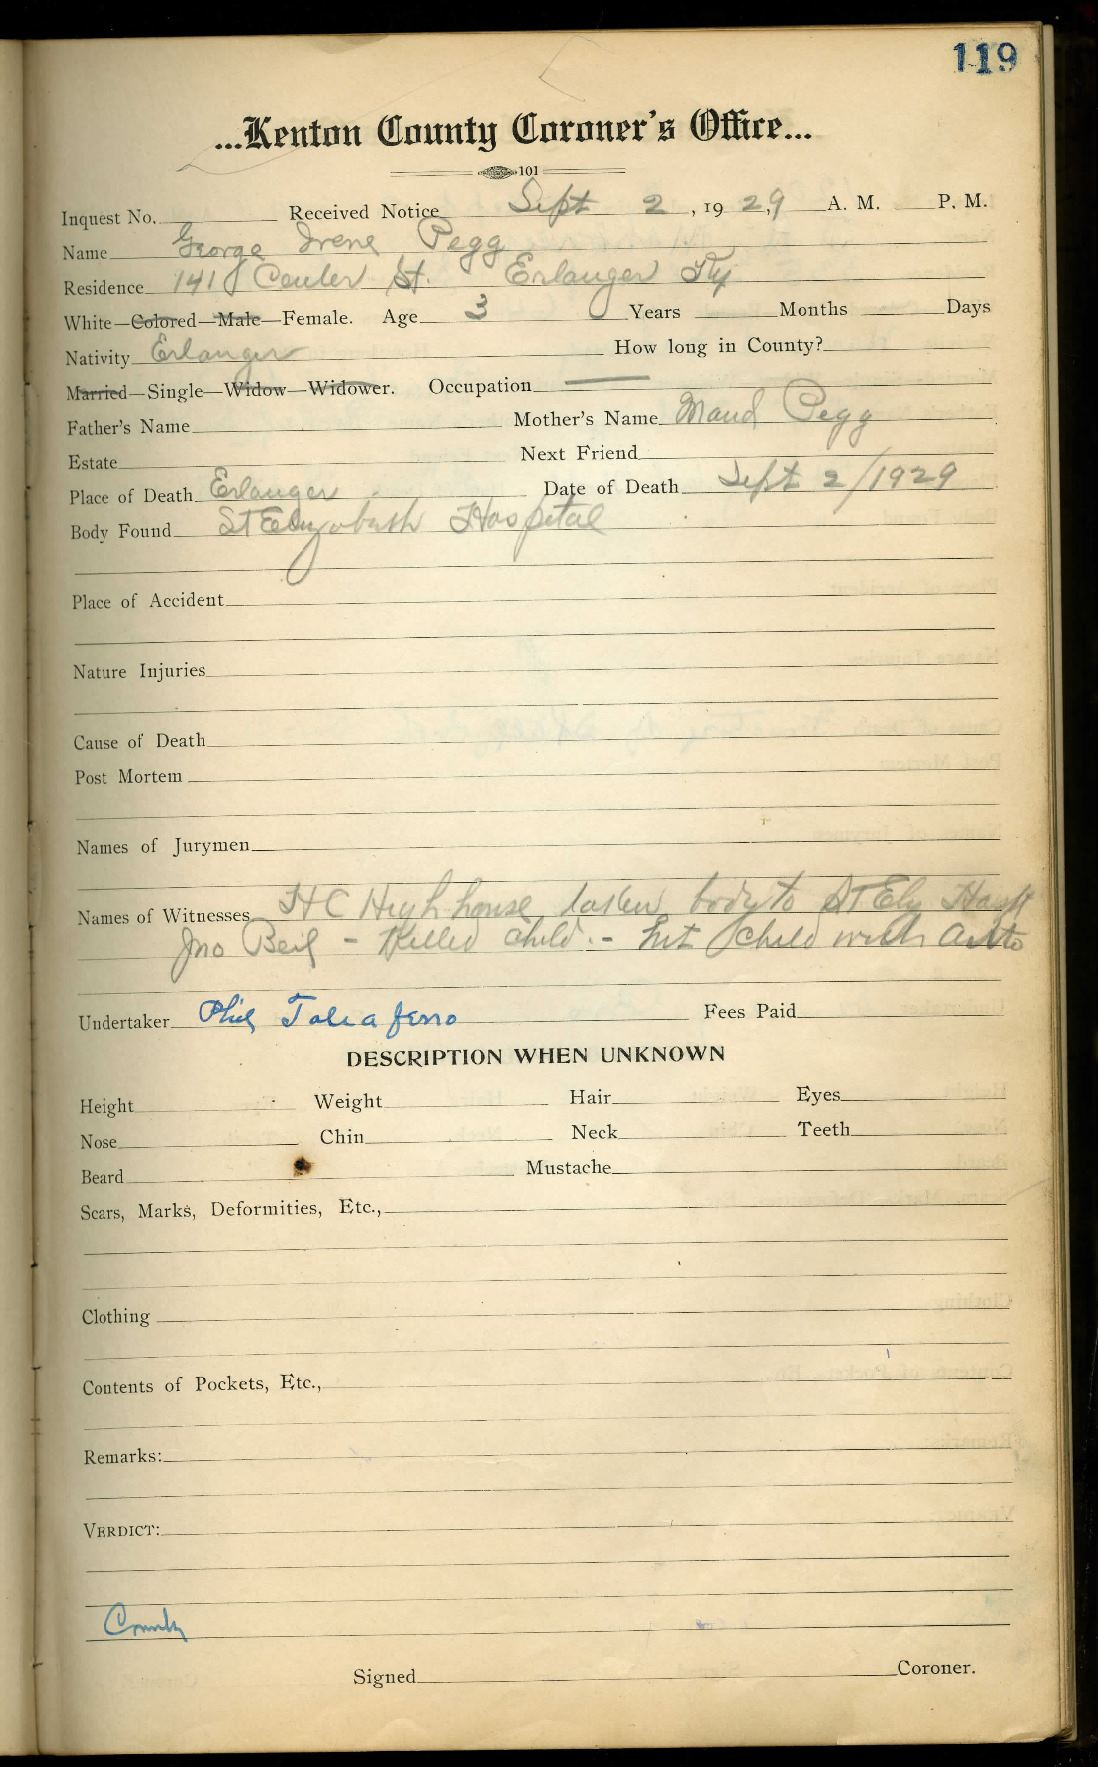 119
...Kenton County Coroner's Office...
101
Inquest No. Received Notice Sept 2, 1929 A. M. P. M.
Name George Irene Pegg
Residence 141 Center St. Erlanger Ky
White—Colored—Male—Female. Age 3 Years Months Days
Nativity Erlanger How long in County?
Married—Single—Widow—Widower. Occupation —
Father's Name Mother's Name Maud Pegg
Estate Next Friend
Place of Death Erlanger Date of Death Sept 2/1929
Body Found St Elizabeth Hospital
Place of Accident
Nature Injuries
Cause of Death
Post Mortem
Names of Jurymen
Names of Witnesses H C Highhouse taken body to St Eliz Hospt
Jno Beil - Killed child. - hit child with auto
Undertaker Phil Taliaferro Fees Paid
DESCRIPTION WHEN UNKNOWN
Height Weight Hair Eyes
Nose Chin Neck Teeth
Beard Mustache
Scars, Marks, Deformities, Etc.,
Clothing
Contents of Pockets, Etc.,
Remarks:
VERDICT:
County
Signed Coroner.